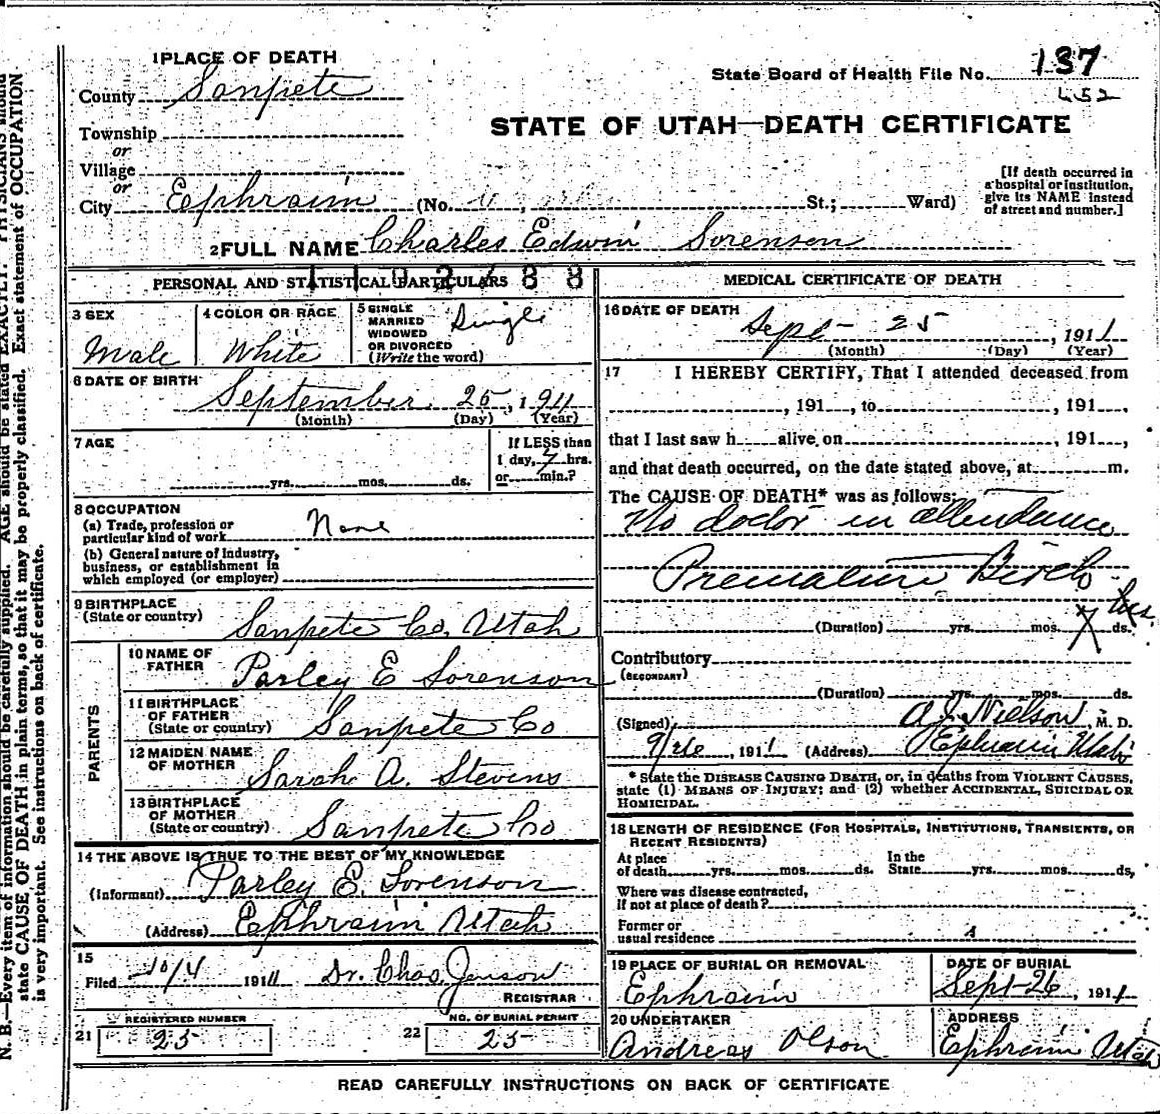 1 PLACE OF DEATH
County Sanpete
Township
or
Village
or
City Ephraim (No. St.; Ward)
State Board of Health File No. 137
452
STATE OF UTAH—DEATH CERTIFICATE
[If death occurred in
a hospital or institution,
give its NAME instead
of street and number.]
2 FULL NAME Charles Edwin Sorenson
PERSONAL AND STATISTICAL PARTICULARS
3 SEX
Male
4 COLOR OR RACE
White
5 SINGLE
MARRIED
WIDOWED
OR DIVORCED
(Write the word)
Single
6 DATE OF BIRTH
September 25, 1911
(Month) (Day) (Year)
7 AGE
yrs. mos. ds.
If LESS than
1 day, 7 hrs.
or min.?
8 OCCUPATION
(a) Trade, profession or
particular kind of work None
(b) General nature of industry,
business, or establishment in
which employed (or employer)
9 BIRTHPLACE
(State or country)
Sanpete Co, Utah
PARENTS
10 NAME OF
FATHER Parley E Sorenson
11 BIRTHPLACE
OF FATHER
(State or country) Sanpete Co
12 MAIDEN NAME
OF MOTHER
Sarah A. Stevens
13 BIRTHPLACE
OF MOTHER
(State or country) Sanpete Co
14 THE ABOVE IS TRUE TO THE BEST OF MY KNOWLEDGE
(Informant) Parley E. Sorenson
(Address) Ephraim Utah
15
Filed 10/4 1911 Dr. Chas. Jenson
REGISTRAR
REGISTERED NUMBER
21 25
NO. OF BURIAL PERMIT
22 25
MEDICAL CERTIFICATE OF DEATH
16 DATE OF DEATH
Sept - 25, 1911
(Month) (Day) (Year)
17 I HEREBY CERTIFY, That I attended deceased from
, 191 , to , 191 ,
that I last saw h alive on , 191 ,
and that death occurred, on the date stated above, at m.
The CAUSE OF DEATH* was as follows:
No doctor in attendance
Premature Birth
(Duration) yrs. mos. 7 ds. hrs.
Contributory
(SECONDARY)
(Duration) yrs. mos. ds.
(Signed) A. J. Nielson, M. D.
9/26, 1911 (Address) Ephraim Utah
* State the DISEASE CAUSING DEATH, or, in deaths from VIOLENT CAUSES,
state (1) MEANS OF INJURY; and (2) whether ACCIDENTAL, SUICIDAL OR
HOMICIDAL.
18 LENGTH OF RESIDENCE (FOR HOSPITALS, INSTITUTIONS, TRANSIENTS, OR
RECENT RESIDENTS)
At place
of death yrs. mos. ds.
In the
State yrs. mos. ds,
Where was disease contracted,
If not at place of death?
Former or
usual residence
19 PLACE OF BURIAL OR REMOVAL
Ephraim
DATE OF BURIAL
Sept-26, 1911
20 UNDERTAKER
Andreas Olson
ADDRESS
Ephraim Utah
READ CAREFULLY INSTRUCTIONS ON BACK OF CERTIFICATE
N. B.—Every item of information should be carefully supplied. AGE should be stated EXACTLY. PHYSICIANS should
state CAUSE OF DEATH in plain terms, so that it may be properly classified. Exact statement of OCCUPATION
is very important. See instructions on back of certificate.